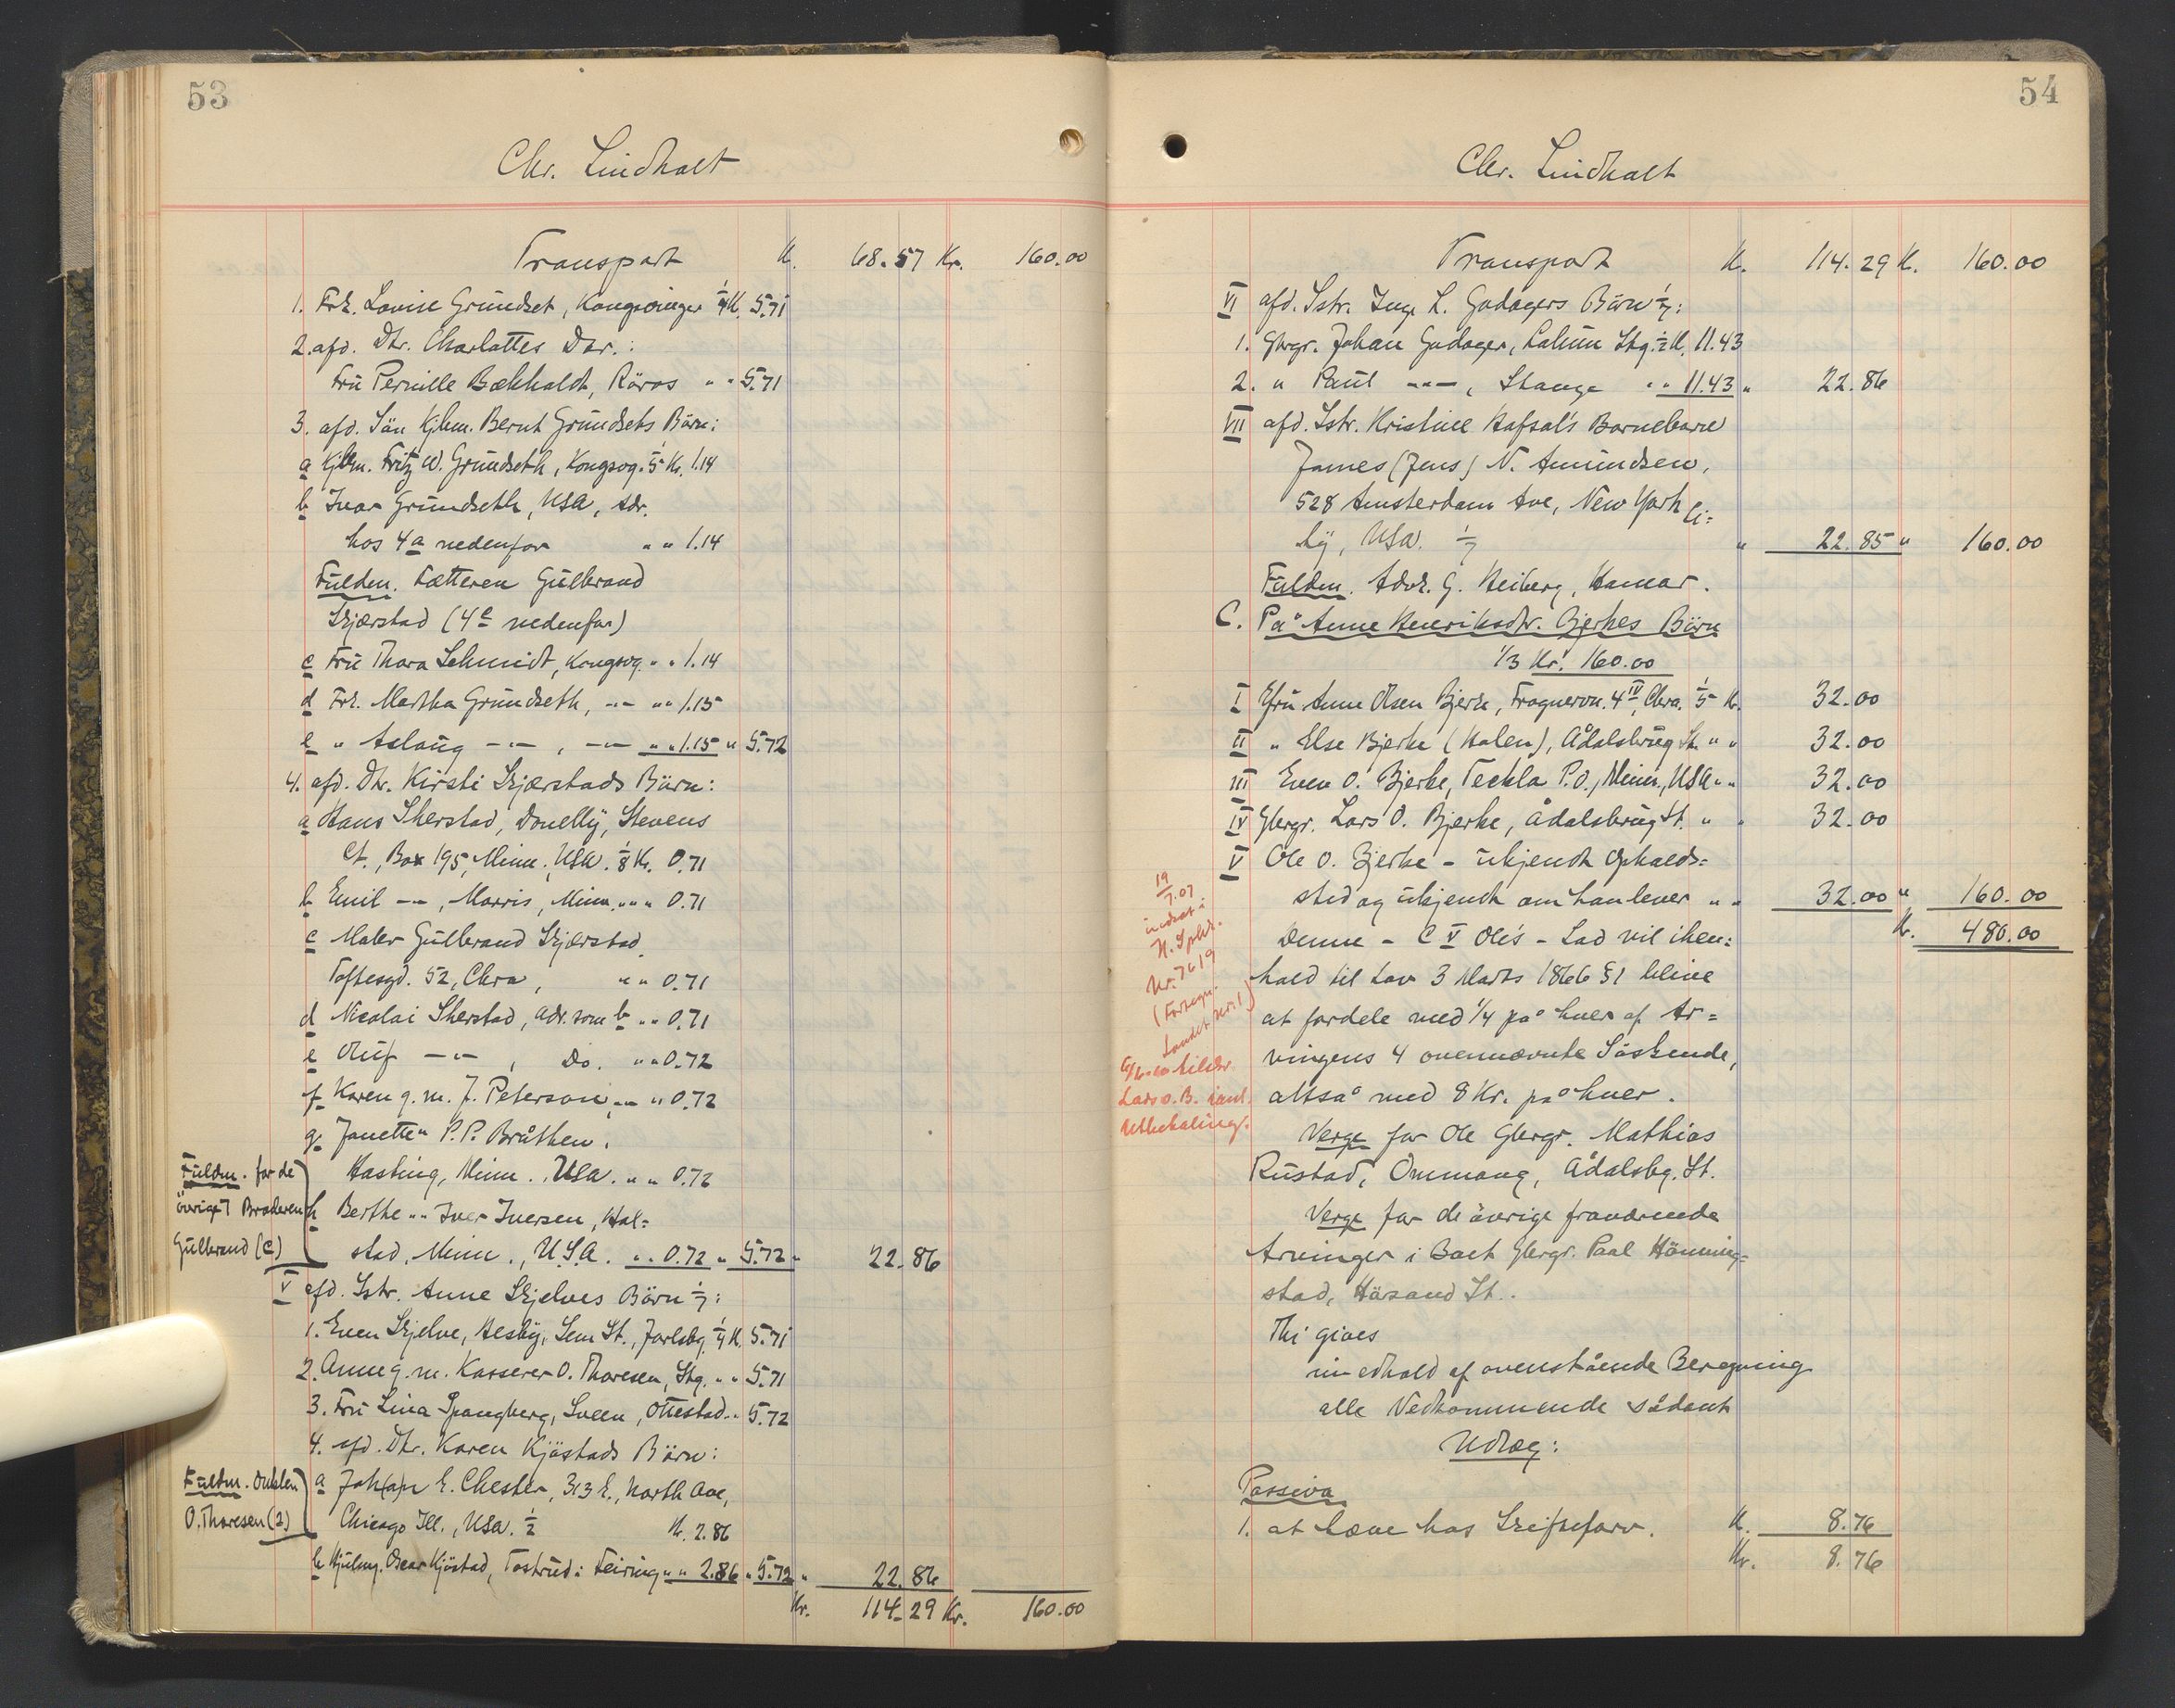 53
Chr. Lindholt
Transport K. 68.57 Kr. 160.00
1. Frk. Lovise Grundset, Kongsvinger 1/4 K. 5.71
2. afd. Dtr. Charlottes Dtr.:
Fru Pernille Bækholdt, Röros " " 5.71
3. afd. Sön Kjbm. Bernt Grundsets Börn:
a Kjbm. Fritz W. Grundseth, Kongsvg. 1/5 Kr. 1.14
b Ivar Grundseth, USA, adr.
hos 4a nedenfor " " 1.14
Fuldm. Fætteren Gulbrand
Skjærstad (4c nedenfor)
c Fru Thora Schmidt, Kongsvg. " " 1.14
d Frk. Martha Grundseth, -"- " " 1.15
e " Aslaug -"-, -"- " " 1.15 " 5.72
4. afd. Dtr. Kirsti Skjærstads Börn:
a Hans Sherstad, Donelly, Stevens
Ct., Box 195, Minn., USA. 1/8 Kr. 0.71
b Emil -"-, Morris, Minn. " " " 0.71
c Maler Gulbrand Skjærstad,
Toftesgd. 52, Chra, " " 0.71
d Nicolai Sherstad, adr. som b " " 0.71
e Oluf -"-, Do. " " 0.72
f Karen g. m. J. Peterson -"- " 0.72
g Janette " P. P. Bråthen,
Hasting, Minn., USA. " " 0.72
Fuldm. for de
övrige Broderen
Gulbrand (c)
h Berthe " " Iver Iversen, Hal=
stad, Minn., U.S.A. " " 0.72 " 5.72 " 22.86
V afd. Sstr. Anne Skjelves Börn 1/7:
1. Even Skjelve, Aesby, Sem St., Jarlsbg. 1/4 K. 5.71
2. Anne g. m. Kasserer O. Thoresen, Stg. " " 5.71
3. Fru Lina Spangberg, Sveen, Ottestad " " 5.72
4. afd. Dtr. Karen Kjöstads Börn:
Fuldm. Onklen
O. Thoresen (2)
a Joh(a)n E. Chester, 313 E., North Ave,
Chicago Ill., USA. 1/2 Kr. 2.86
b Hjulmg. Oscar Kjöstad, Tostrud i Feiring " " 2.86 " 5.72 " 22.86
Kr. 114.29 Kr. 160.00
54
Chr. Lindholt
Transport K. 114.29 K. 160.00
VI afd. Sstr. Inge L. Godagers Börn 1/7:
1. Gbrgr. Johan Godager, Lalum Stg. 1/2 K. 11.43
2. " Paul -"-, Stange " " 11.43 " 22.86
VII afd. Sstr. Kristine Hafsals Barnebarn
James (Jens) N. Amundsen,
528 Amsterdam Ave, New York Ci=
ty, USA. 1/7 " 22.85 " 160.00
Fuldm. Advk. G. Heiberg, Hamar.
C. På Anne Henriksdtr. Bjerkes Börn
1/3 Kr. 160.00
I Gfru Anne Olsen Bjerke, Frognervn. 4 IV, Chra. 1/5 K. 32.00
II " Else Bjerke (Holen), Ådalsbrug St. " " 32.00
III Even O. Bjerke, Teckla P.O., Minn., USA " " 32.00
IV Gbrgr. Lars O. Bjerke, Ådalsbrug St. " " 32.00
V Ole O. Bjerke - ukjendt Opholds=
sted og ukjendt om han lever " " 32.00 " 160.00
K. 480.00
19/7.07
indsat i
H. Spbk.
Nr. 7619
Denne - C V Ole's - Lod vil i hen=
hold til Lov 3 Marts 1866 §1 blive
at fordele med 1/4 på hver af Ar=
vingens 4 ovennævnte Söskende,
altså med 8 Kr. på hver.
Lars O. B.
Utbetaling.
Verge for Ole Gbrgr. Mathias
Rustad, Ommang, Ådalsbg. St.
Verge for de övrige fraværende
Arvinger i Boet Gbrgr. Paal Hönning=
stad, Hösand St..
Thi gives
i medhold af ovenstående Beregning
alle Vedkommende sådant
Udlæg:
Passiva
1. at hæve hos Skifteforv. K. 8.76
Kr. 8.76